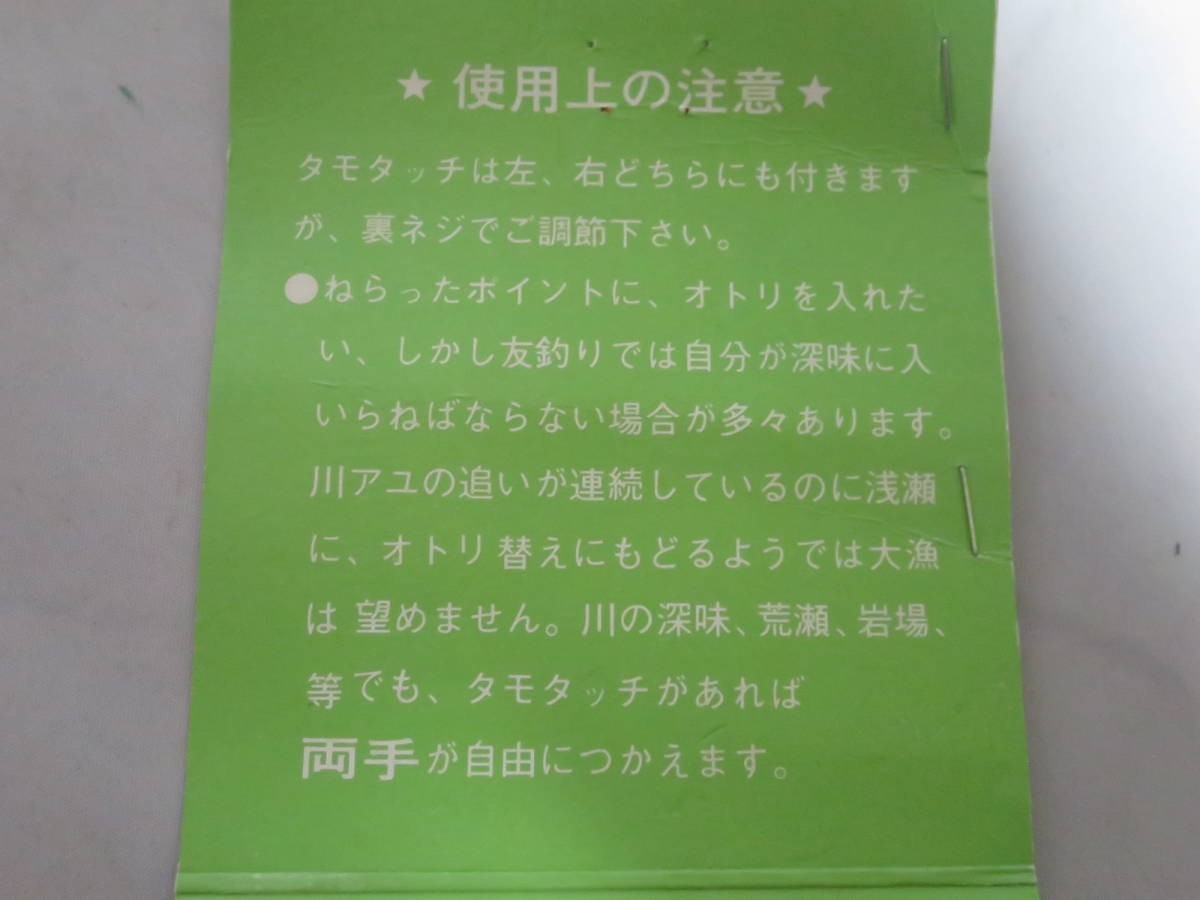 ★使用上の注意★
タモタッチは左、右どちらにも付きます
が、裏ネジでご調節下さい。
●ねらったポイントに、オトリを入れた
い、しかし友釣りでは自分が深味に入
いらねばならない場合が多々あります。
川アユの追いが連続しているのに浅瀬
に、オトリ替えにもどるようでは大漁
は望めません。川の深味、荒瀬、岩場、
等でも、タモタッチがあれば
両手が自由につかえます。